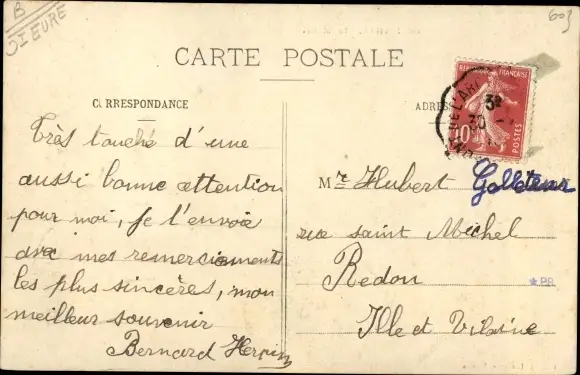 B
SI EURE
603
CARTE POSTALE
CORRESPONDANCE
ADRES
REPUBLIQUE FRANÇAISE
10
POSTES
30
Très touché d'une
aussi bonne attention
pour moi, je l'envoie
avec mes remerciements
les plus sincères, mon
meilleur souvenir
Bernard
Mr Hubert
rue saint Michel
Redon
Ille et Vilaine
PR